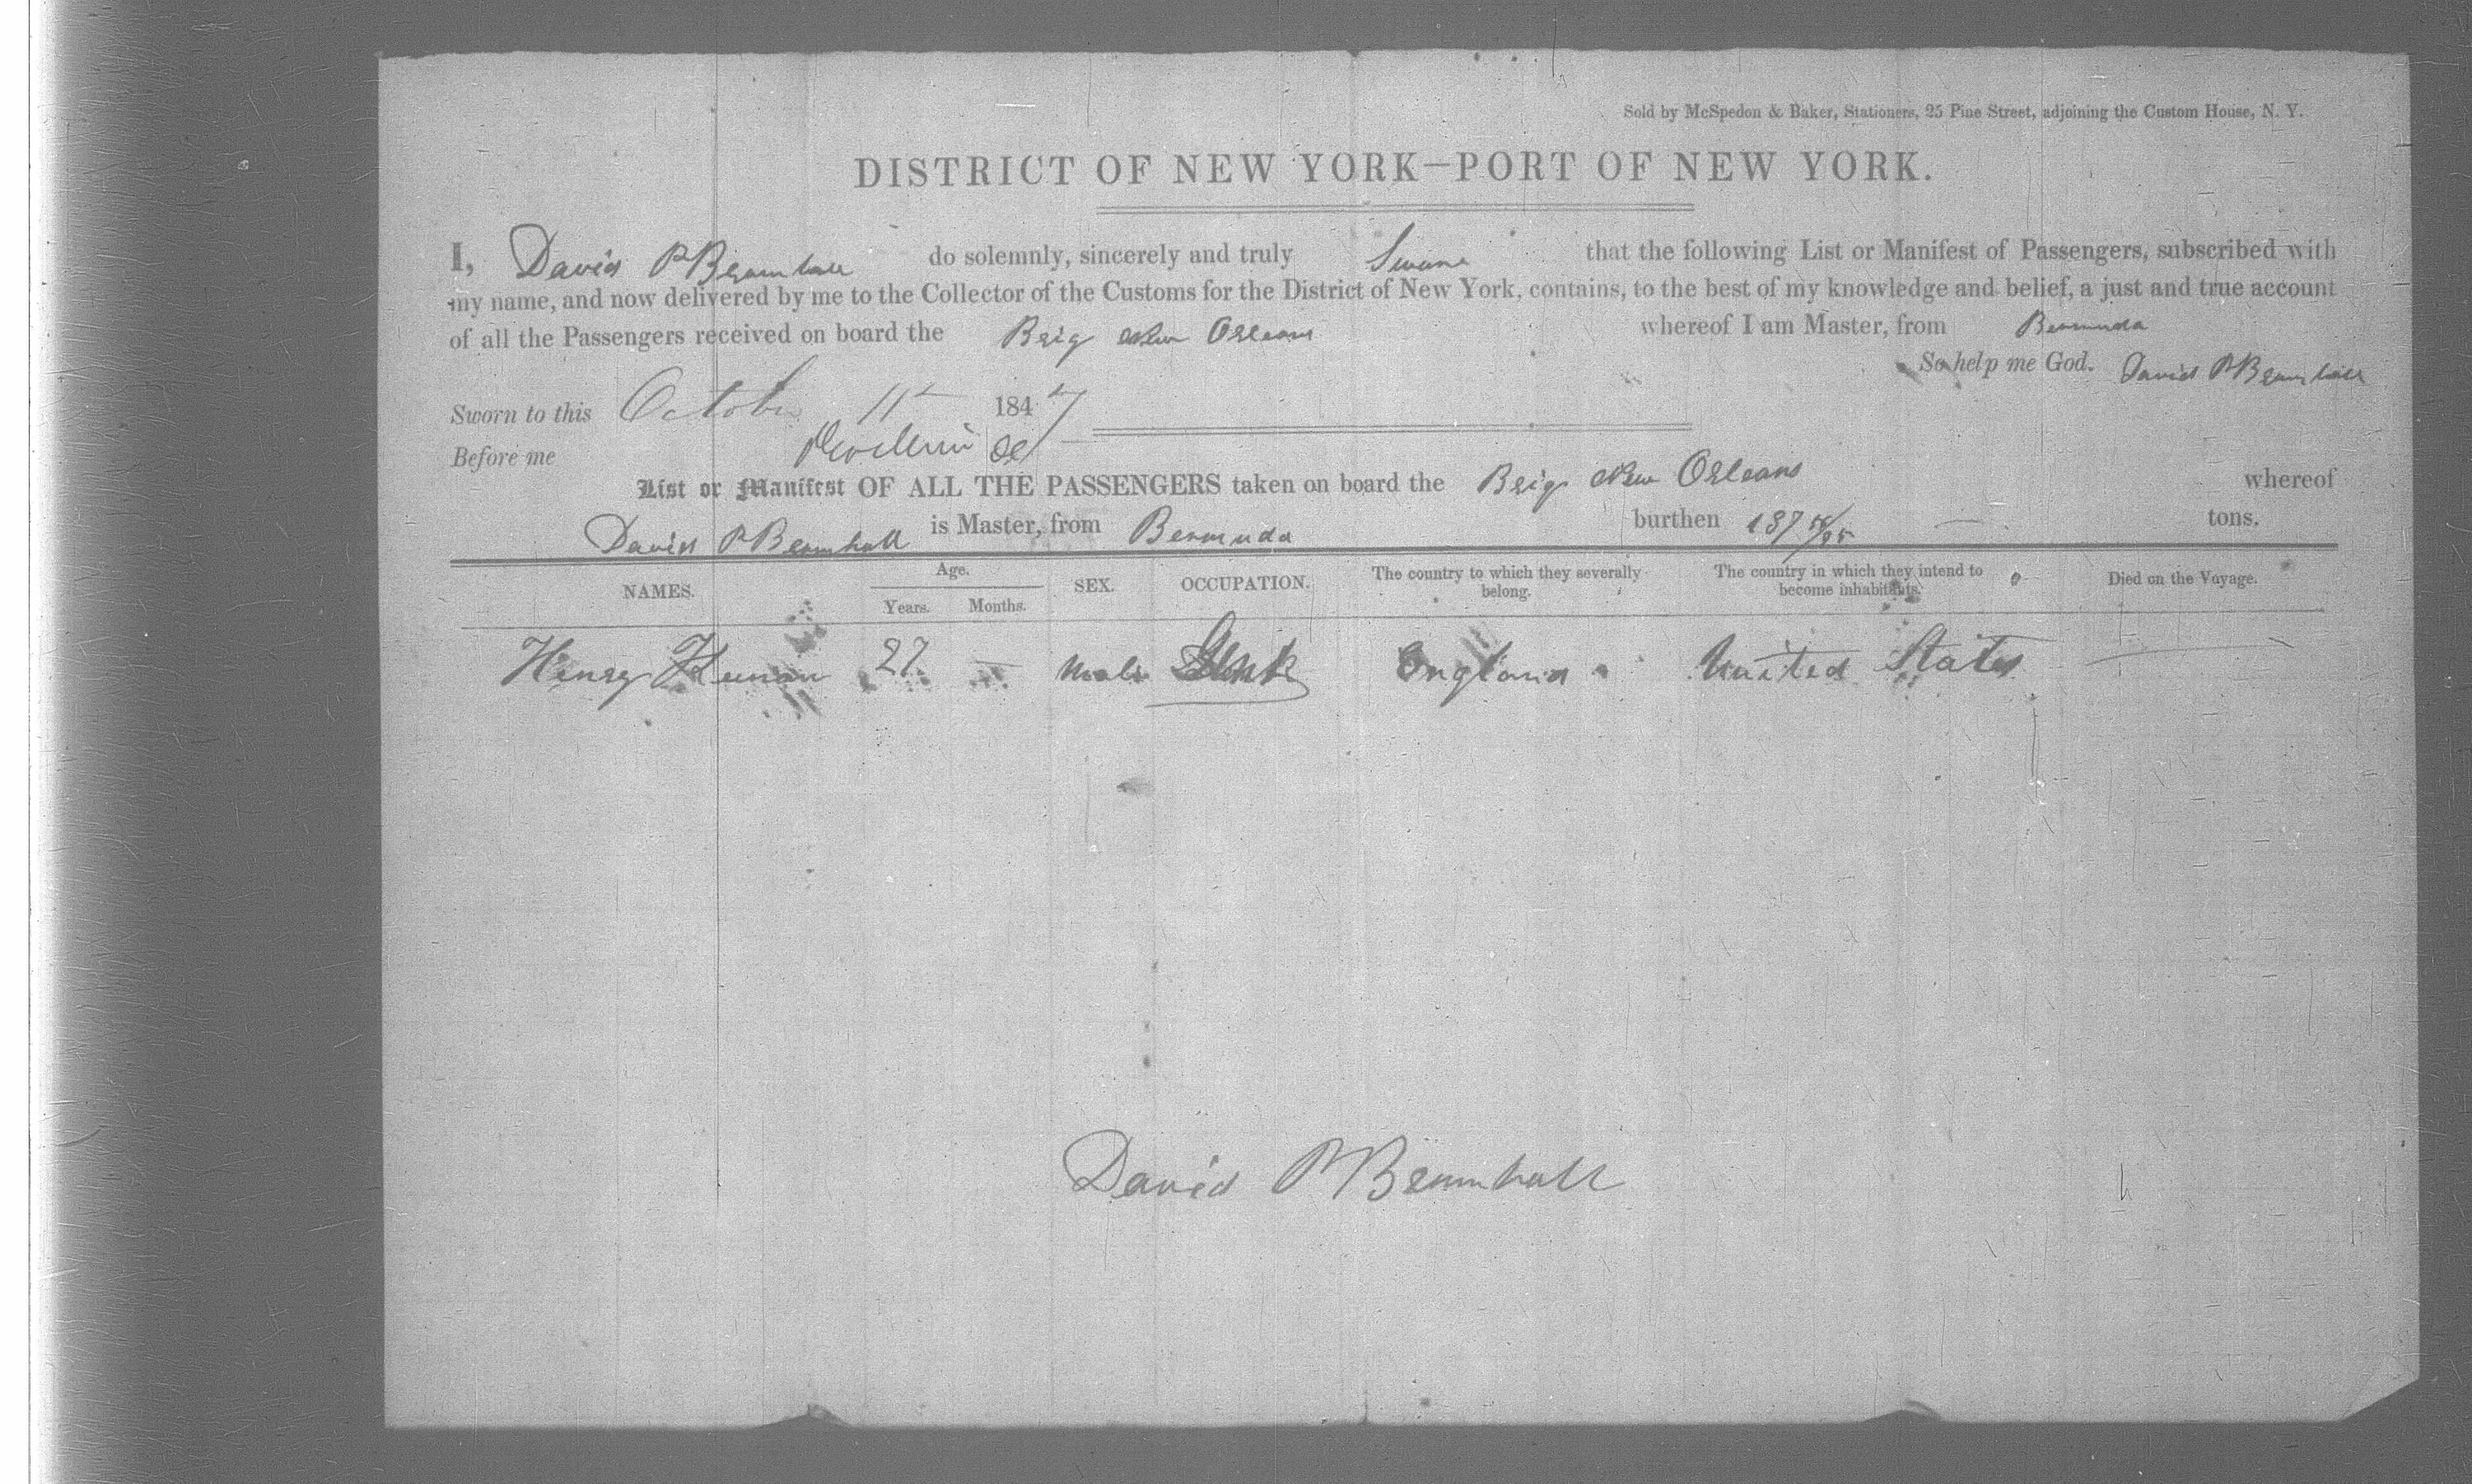 Sold by McSpedon & Baker, Stationers, 25 Pine Street, adjoining the Custom House, N. Y.
DISTRICT OF NEW YORK—PORT OF NEW YORK.
I, David P Bramhall do solemnly, sincerely and truly Sware that the following List or Manifest of Passengers, subscribed with
my name, and now delivered by me to the Collector of the Customs for the District of New York, contains, to the best of my knowledge and belief, a just and true account
of all the Passengers received on board the Brig New Orleans whereof I am Master, from Bermuda
So help me God. David P Bramhall
Sworn to this October 11 1847
Before me
List or Manifest OF ALL THE PASSENGERS taken on board the Brig New Orleans whereof
David P Bramhall is Master, from Bermuda burthen 187 tons.
NAMES. Age. Years. Months. SEX. OCCUPATION. The country to which they severally belong. The country in which they intend to become inhabitants. Died on the Voyage.
Henry 27 — Male England United States —
David P Bramhall